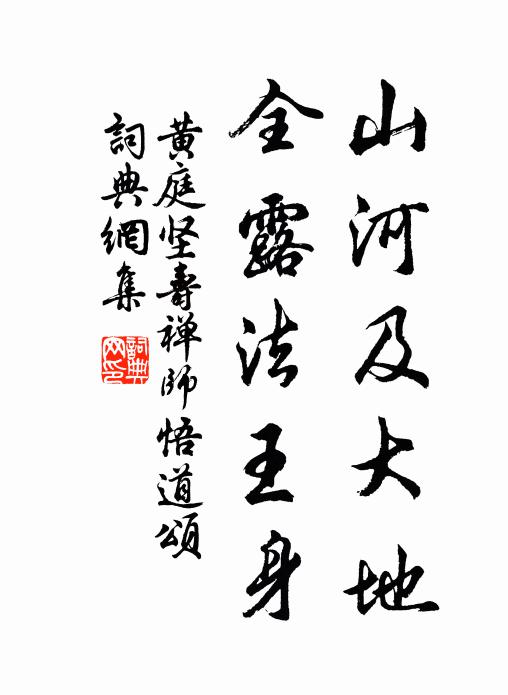 山河及大地
全露法王身
黄庭坚壽禅師悟道頌
詞典網集
詞典網印